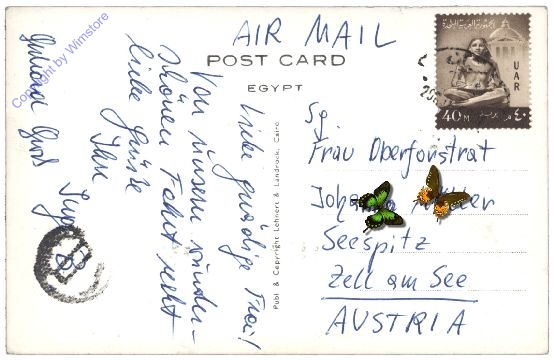 AIR MAIL
POST CARD
EGYPT
UAR
40 M
Copyright by Wimstore
Liebe gnädige Frau!
Von unserer wunder-
schönen Fahrt recht
liebe Grüße
Ihre
Publ & Copyright Lehnert & Landrock, Cairo
Sg.
Frau Oberforstrat
Seespitz
Zell am See
AUSTRIA